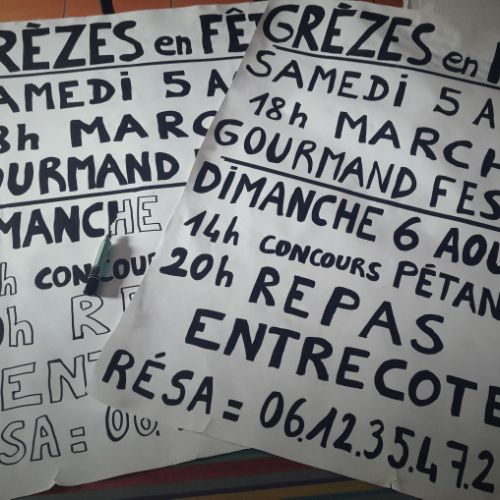 RÈZES en FÊT
AMEDI 5 A
8h MARC
OURMAND
MANCHE
h CONCOUR
0h RE
ENT
SA = 06.
GRÈZES en F
SAMEDI 5 A
18h MARCH
GOURMAND FES
DIMANCHE 6 AOU
14h CONCOURS PÉTAN
20h REPAS
ENTRECOTE
RÉSA = 06.12.35.47.2